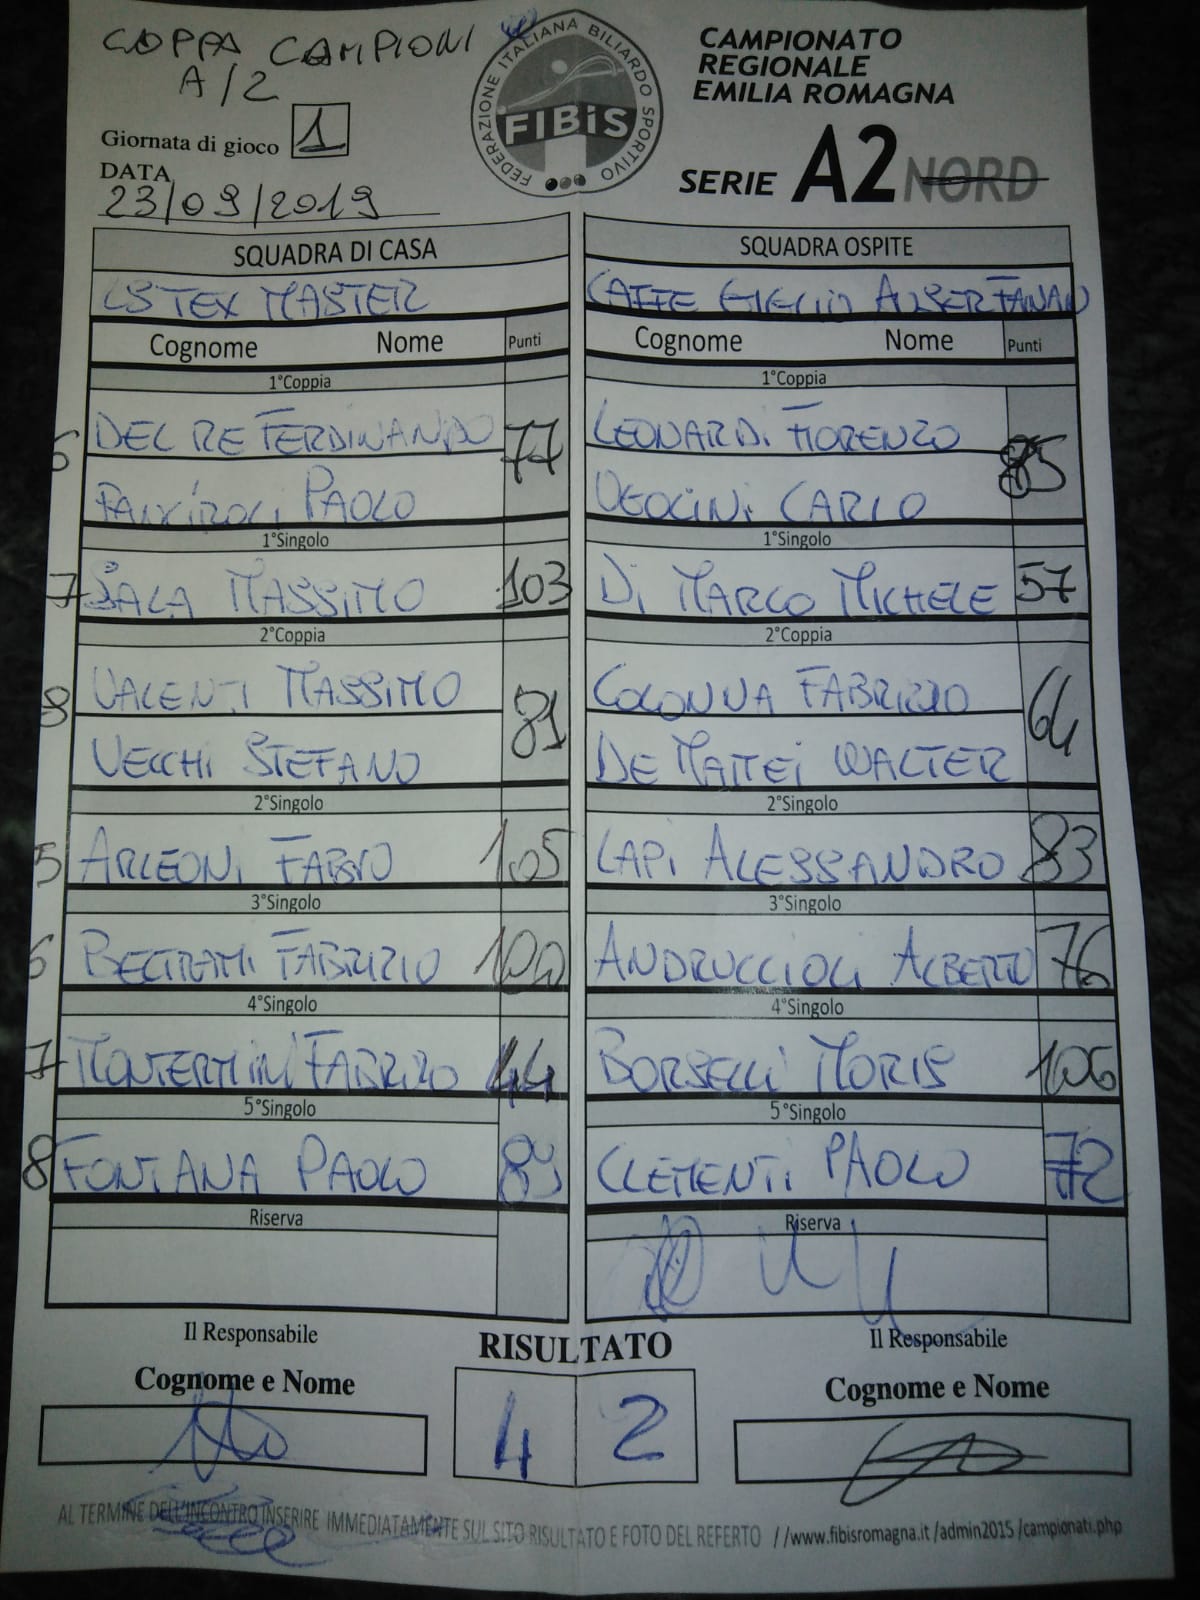 COPPA CAMPIONI
A/2
Giornata di gioco 1
DATA
23/09/2019
FEDERAZIONE ITALIANA BILIARDO SPORTIVO
FIBiS
CAMPIONATO
REGIONALE
EMILIA ROMAGNA
SERIE A2 NORD
SQUADRA DI CASA SQUADRA OSPITE
LSTEX MASTER CAFFE GIGLIO ALBERFANAN
Cognome Nome Punti Cognome Nome Punti
1°Coppia 1°Coppia
6 DEL RE FERDINANDO 77 LEONARDI FIORENZO 85
PANCIROLI PAOLO UGOLINI CARLO
1°Singolo 1°Singolo
7 SALA MASSIMO 103 DI MARCO MICHELE 57
2°Coppia 2°Coppia
8 VALENTI MASSIMO 81 COLONNA FABRIZIO 64
VECCHI STEFANO DE MATTEI WALTER
2°Singolo 2°Singolo
5 ARLEONI FABIO 105 LAPI ALESSANDRO 83
3°Singolo 3°Singolo
6 BELTRAMI FABRIZIO 100 ANDRUCCIOLI ALBERTO 76
4°Singolo 4°Singolo
7 MONTERMINI FABRIZIO 44 BORSELLI MORIS 106
5°Singolo 5°Singolo
8 FONTANA PAOLO 89 CLEMENTI PAOLO 72
Riserva Riserva
Il Responsabile RISULTATO Il Responsabile
Cognome e Nome Cognome e Nome
4 2
AL TERMINE DELL'INCONTRO INSERIRE IMMEDIATAMENTE SUL SITO RISULTATO E FOTO DEL REFERTO //www.fibisromagna.it/admin2015/campionati.php